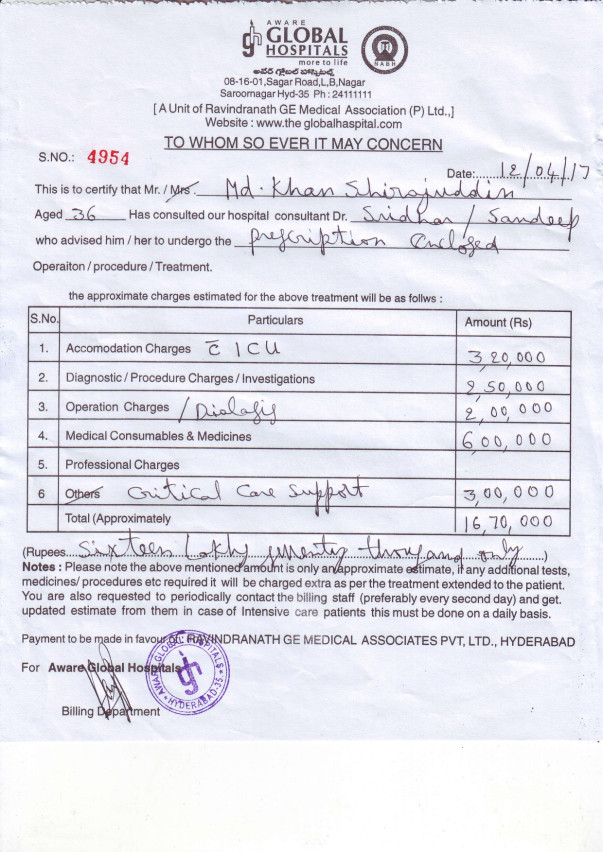 AWARE
gh GLOBAL
HOSPITALS
more to life
NABH
అవేర్ గ్లోబల్ హాస్పిటల్స్
08-16-01,Sagar Road,L,B,Nagar
Saroornagar Hyd-35 Ph : 24111111
[ A Unit of Ravindranath GE Medical Association (P) Ltd.,]
Website : www.the globalhaspital.com
TO WHOM SO EVER IT MAY CONCERN
S.NO.: 4954
Date: 12/04/17
This is to certify that Mr. / Mrs. Md. Khan Shirajuddin
Aged 36 Has consulted our hospital consultant Dr. Sridhar / Sandeep
who advised him / her to undergo the prescription enclosed
Operaiton / procedure / Treatment.
the approximate charges estimated for the above treatment will be as follws :
S.No. Particulars Amount (Rs)
1. Accomodation Charges c̄ ICU 3,20,000
2. Diagnostic / Procedure Charges / Investigations 2,50,000
3. Operation Charges / Dialasis 2,00,000
4. Medical Consumables & Medicines 6,00,000
5. Professional Charges
6 Others Critical Care Support 3,00,000
Total (Approximately 16,70,000
(Rupees Sixteen Lakhs seventy thousand only)
Notes : Please note the above mentioned amount is only an approximate estimate, if any additional tests,
medicines/ procedures etc required it will be charged extra as per the treatment extended to the patient.
You are also requested to periodically contact the billing staff (preferably every second day) and get.
updated estimate from them in case of Intensive care patients this must be done on a daily basis.
Payment to be made in favour of: RAVINDRANATH GE MEDICAL ASSOCIATES PVT, LTD., HYDERABAD
For Aware Global Hospitals
AWARE GLOBAL HOSPITALS
gh
HYDERABAD-35
Billing Department